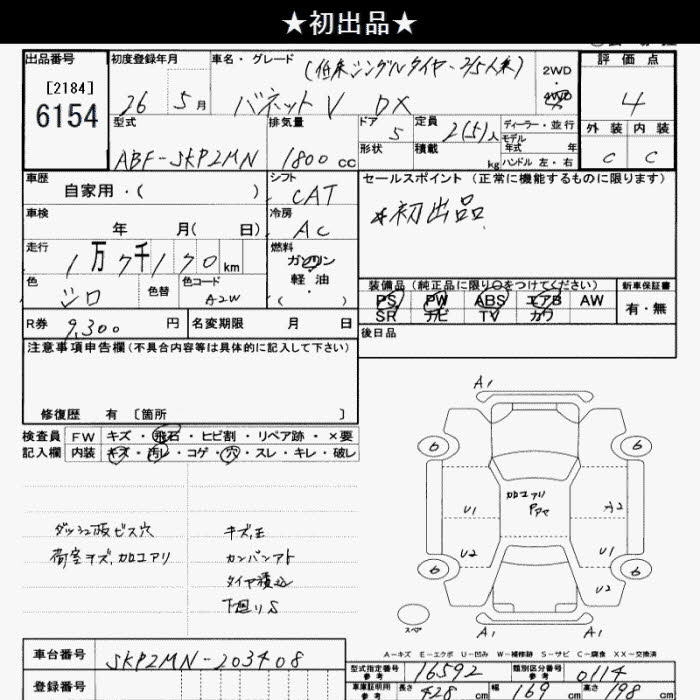 ★初出品★
出品番号
[2184]
6154
初度登録年月
26 5月
車名・グレード
(低床シングルタイヤー2/5人乗)
バネットV DX
2WD
4WD
評価点
4
外装 内装
C C
型式
ABF-SKP2MN
排気量
1800 cc
ドア
5
形状
定員
2(5)人
積載
kg
ディーラー・並行
モデル
年式 年
ハンドル 左・右
車歴
自家用・( )
シフト
CAT
セールスポイント (正常に機能するものに限ります)
*初出品
車検
年 月( 日)
冷房
AC
走行
1万7千170km
燃料
ガソリン
軽油・
( )
色
シロ
色替
色コード
A2W
装備品(純正品に限り○をつけてください)
PS PW ABS エアB AW
SR ナビ TV カワ
新車保証書
有・無
R券 9,300 円
名変期限 月 日
後日品
注意事項申告欄(不具合内容等は具体的に記入して下さい)
修復歴 有 〔箇所 〕
検査員 FW キズ・飛石・ヒビ割・リペア跡・×要
記入欄 内装 キズ・汚レ・コゲ・穴・スレ・キレ・破レ
ダッシュ板ビス穴
荷室キズ,カロコアリ
キズ,エ
カンバンアト
タイヤ積込
下廻りS
A1
6 6
カロコアリ
Pアヤ
U1 A2
U2 U1
6 6
U2
スペア
A1 A1
A−キズ E−エクボ U−凹み W−補修跡 S−サビ C−腐食 XX−交換済
車台番号 SKP2MN-203408
登録番号
型式指定番号
参考
16592
類別区分番号
参考
0114
車庫証明用
参考
長さ 428 cm
幅 169 cm
高さ 198 cm